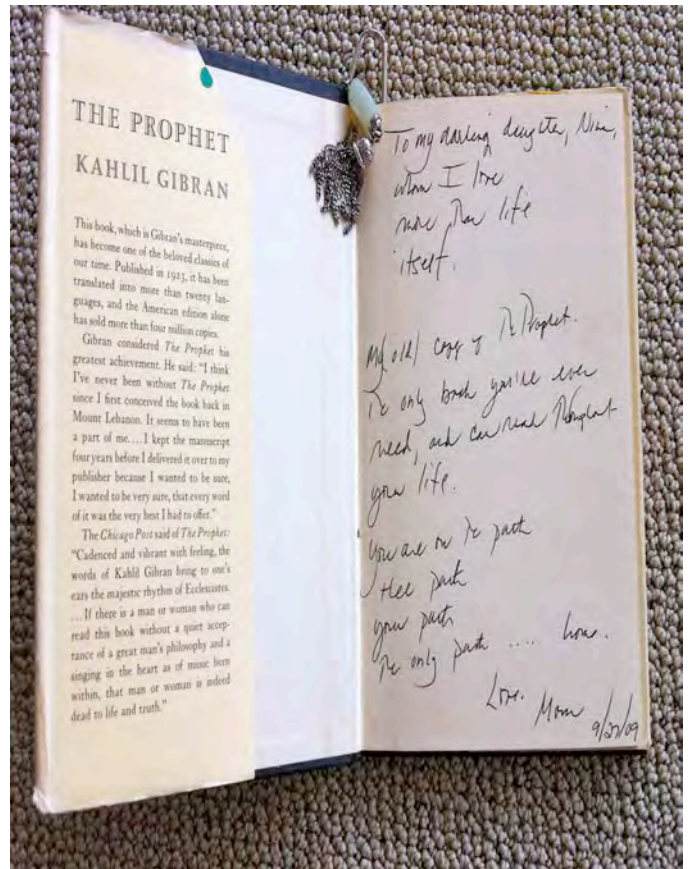 THE PROPHET
KAHLIL GIBRAN
This book, which is Gibran's masterpiece,
has become one of the beloved classics of
our time. Published in 1923, it has been
translated into more than twenty lan-
guages, and the American edition alone
has sold more than four million copies.
Gibran considered The Prophet his
greatest achievement. He said: "I think
I've never been without The Prophet
since I first conceived the book back in
Mount Lebanon. It seems to have been
a part of me....I kept the manuscript
four years before I delivered it over to my
publisher because I wanted to be sure,
I wanted to be very sure, that every word
of it was the very best I had to offer."
The Chicago Post said of The Prophet:
"Cadenced and vibrant with feeling, the
words of Kahlil Gibran bring to one's
ears the majestic rhythm of Ecclesiastes.
...If there is a man or woman who can
read this book without a quiet accep-
tance of a great man's philosophy and a
singing in the heart as of music born
within, that man or woman is indeed
dead to life and truth."
To my darling daughter, Nina,
whom I love
more than life
itself.
My old copy of The Prophet.
The only book you'll ever
need, and can read throughout
your life.
You are on the path
the path
your path
the only path .... home.
Love.
Mom
9/27/09